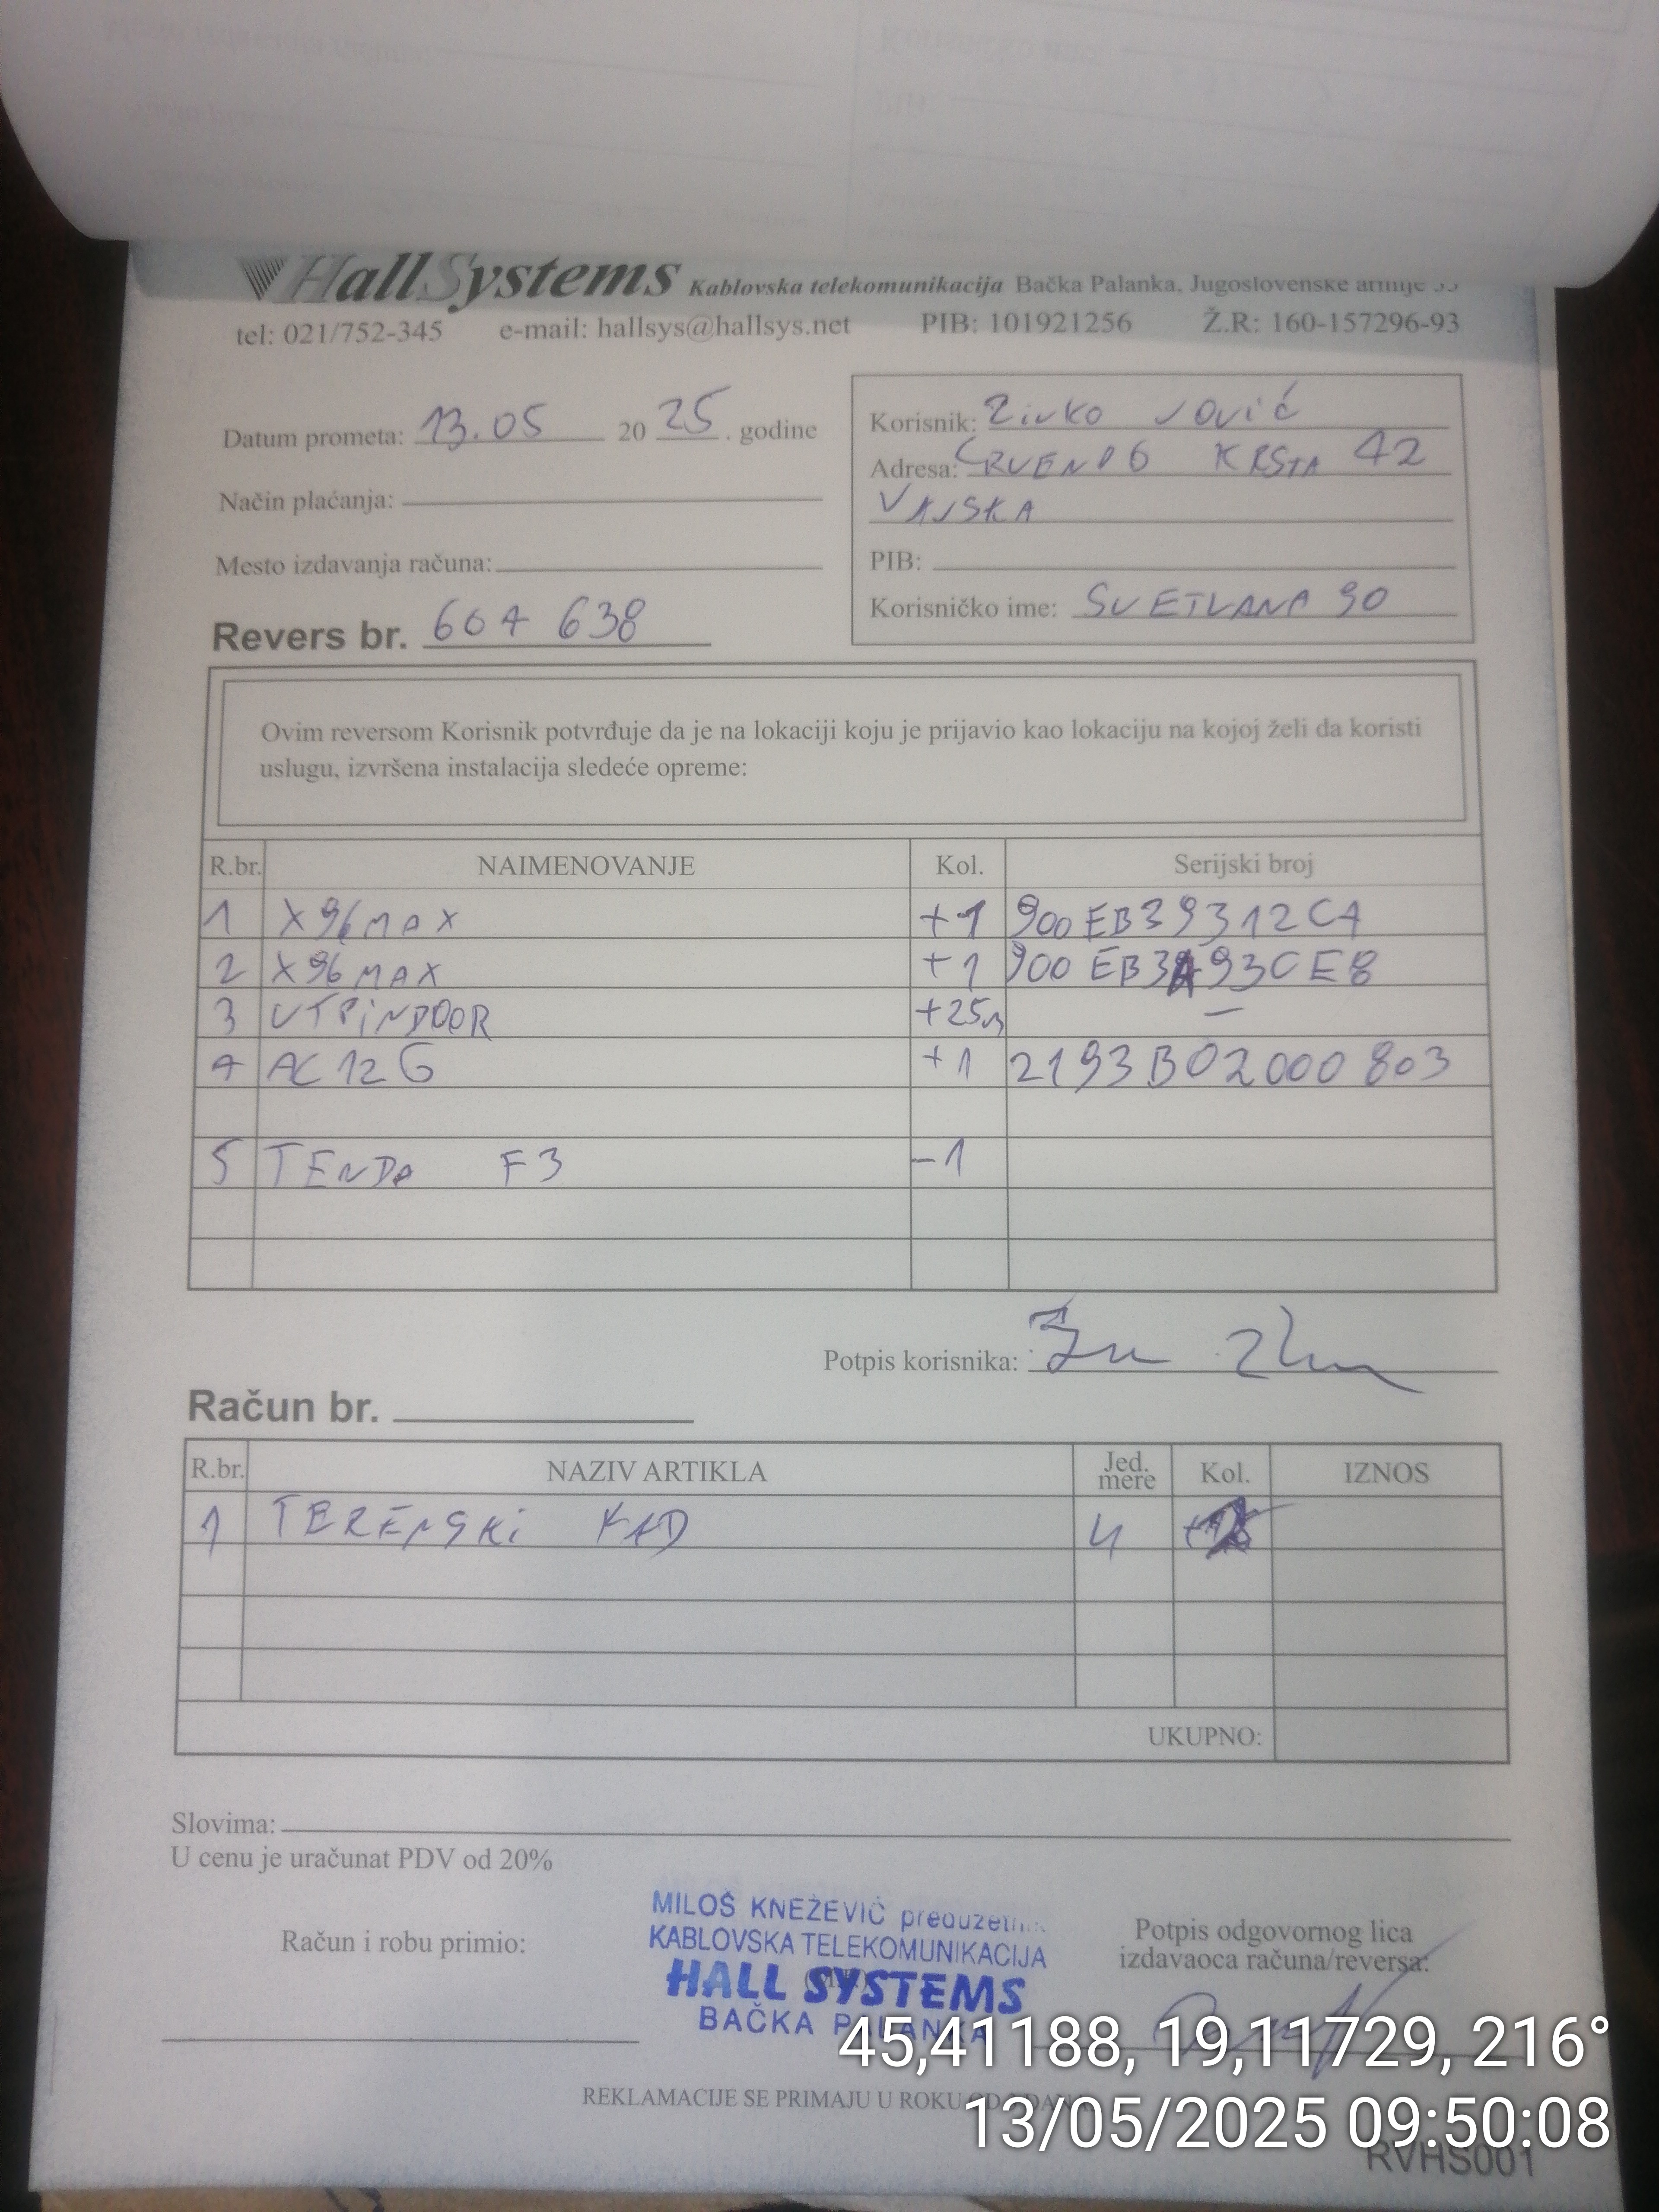 HallSystems Kablovska telekomunikacija Bačka Palanka, Jugoslovenske armije
tel: 021/752-345 e-mail: hallsys@hallsys.net PIB: 101921256 Ž.R: 160-157296-93
Datum prometa: 13.05 2025. godine
Način plaćanja:
Mesto izdavanja računa:
Revers br. 604 638
Korisnik: Zivko Jović
Adresa: CRVENOG KRSTA 42
VAJSKA
PIB:
Korisničko ime: SVETLANA 90
Ovim reversom Korisnik potvrđuje da je na lokaciji koju je prijavio kao lokaciju na kojoj želi da koristi
uslugu, izvršena instalacija sledeće opreme:
R.br. NAIMENOVANJE Kol. Serijski broj
1 X96MAX +1 900EB39312C4
2 X96MAX +1
3 UTPINDOOR +25m —
4 AC12G +1 2193B02000803
5 TENDA F3 -1
Potpis korisnika:
Račun br.
R.br. NAZIV ARTIKLA Jed. mere Kol. IZNOS
1 TERENSKI RAD
UKUPNO:
Slovima:
U cenu je uračunat PDV od 20%
Račun i robu primio:
MILOŠ KNEŽEVIĆ
KABLOVSKA TELEKOMUNIKACIJA
HALL SYSTEMS
BAČKA PALANKA
Potpis odgovornog lica
izdavaoca računa/reversa:
REKLAMACIJE SE PRIMAJU U ROKU
45,41188, 19,11729, 216°
13/05/2025 09:50:08
RVHS001